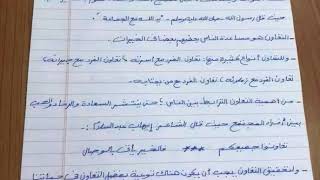 حيث قال رسول الله صلى الله عليه وسلم - " يد الله مع الجماعة " .
- التعاون هو مساعدة الناس بعضهم بعضاً في الخيرات
- وللتعاون أنواع كثيرة منها : تعاون الفرد مع أسرته ، تعاون الفرد مع جيرانه ،
تعاون الفرد مع زملائه ، تعاون الفرد مع من
- من أهمية التعاون الترابط بين الناس ، حتى ينتشر السعادة والرخاء والحب
بين أفراد المجتمع حيث قال الشاعر إيهاب عبد السلام :
تعاونوا جميعكم *** فالخير باق بالوصال
- ولتحقيق التعاون يجب أن يكون هناك توعية بفضل التعاون في حياتنا